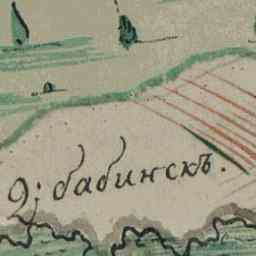 Д; бабинскъ.